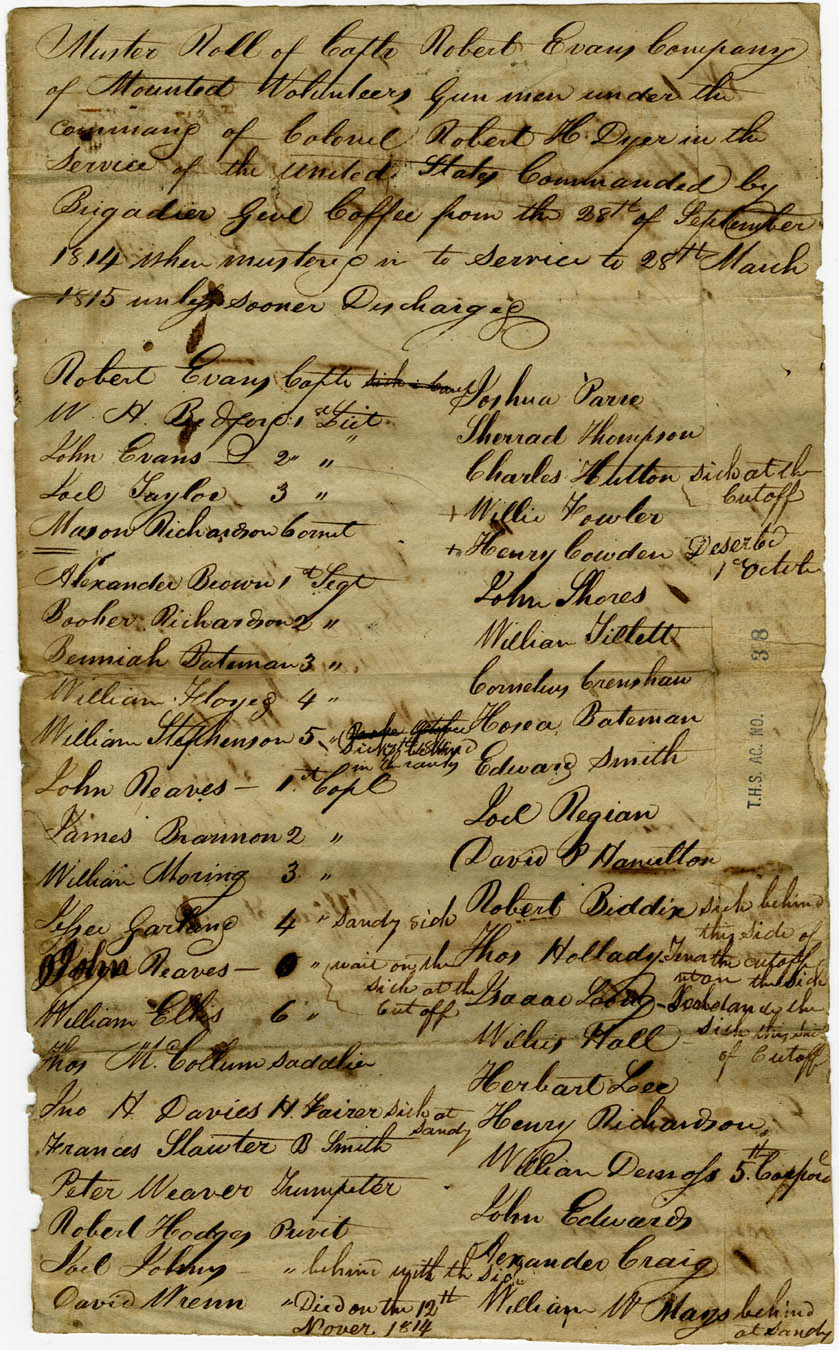 Muster Roll of Captn Robert Evans Company
of Mounted Volunteers Gun men under the
command of Colonel Robert H Dyer in the
Service of the united States Commanded by
Brigadier Genl Coffee from the 28th of September
1814 when mustered in to Service to 28th March
1815 unless sooner Discharged
Robert Evans Captn
W. H. Bedford 1st Liut
John Evans 2 "
Joel Taylor 3 "
Mason Richardson Cornet
Alexander Brown 1st Segt
Booker Richardson 2 "
Benniah Bateman 3 "
William Floyed 4 "
William Stephenson 5 "
John Reaves - 1st Copl
James Brannon 2 "
William Moring 3 "
Jesse Garland 4 " Sandy sick
John Reaves - " wait on the
sick at the
Cut off
William Ellis 6 "
Thos McCollum Saddlier
Jno H. Davies H. Fairer sick at
Sandy
Frances Slawter B Smith
Peter Weaver Trumpiter
Robert Hodges Privit
Joel Johns " behind with the sick
David Wrenn " Died on the 12th
Nover. 1814
Joshua Parre
Sherrad Thompson
Charles Hutton sick at the
Cutoff
+ Willie Fowler
+ Henry Cowden Deserted
1st Octobr
John Shores
William Tillett
Cornelius Crenshaw
Hosea Bateman
Edward Smith
Joel Regian
David P Hamilton
Robert Biddix sick behind
this side of
the cutoff
Thos Hollady
on the sick
Isaac Long
sick this side
of Cutoff
Willis Hall
Herbart Lee
Henry Richardson
William Demoss 5th Corporl
John Edwards
Alexander Craig
William W Mays behind
at Sandy
T.H.S. AC. NO. 38